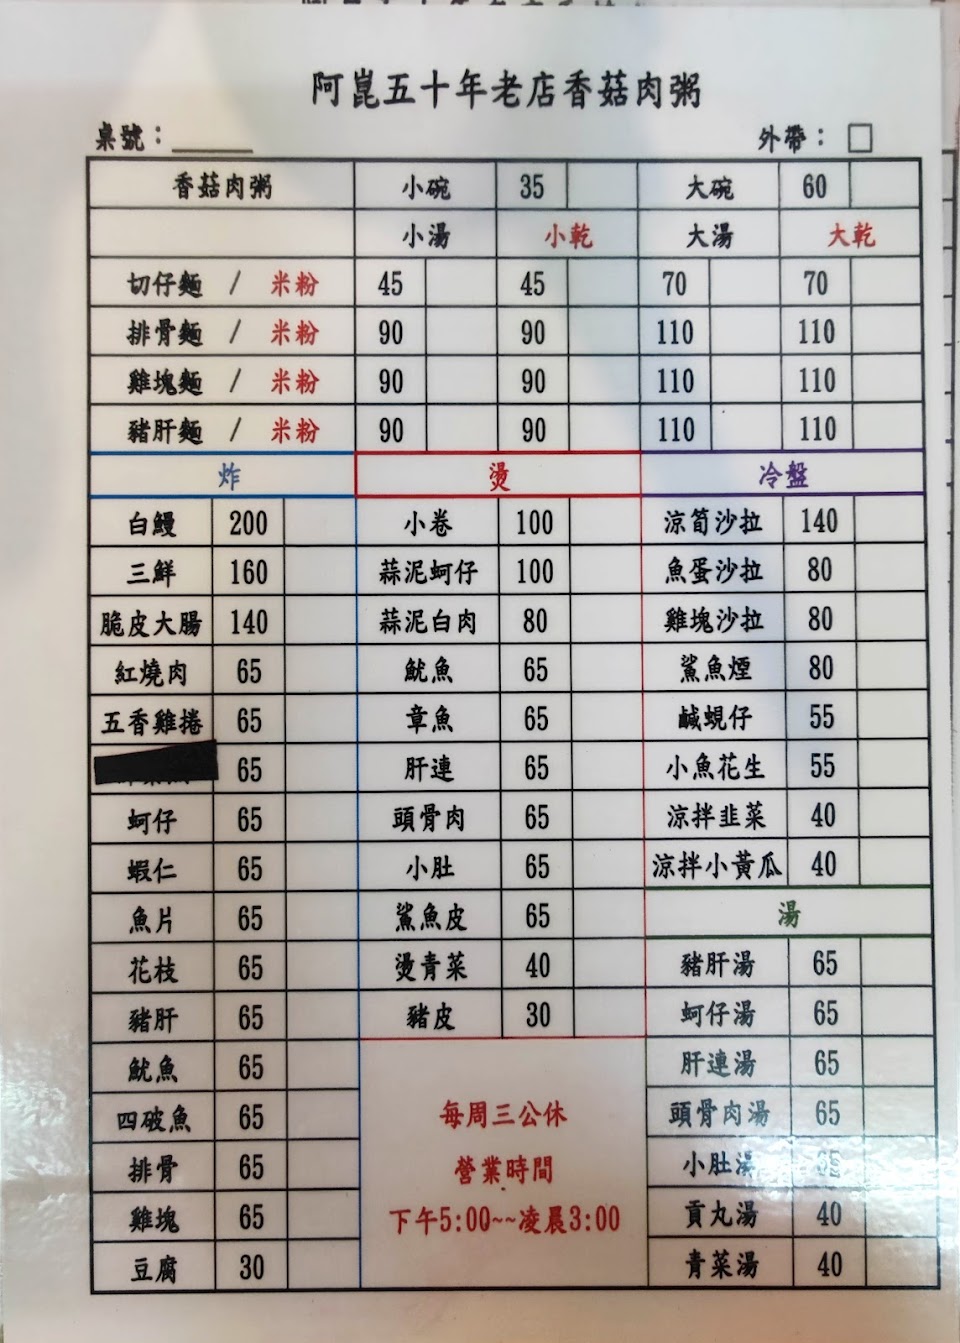 阿崑五十年老店香菇肉粥
桌號：
外帶：
香菇肉粥 小碗 35 大碗 60
小湯 小乾 大湯 大乾
切仔麵 / 米粉 45 45 70 70
排骨麵 / 米粉 90 90 110 110
雞塊麵 / 米粉 90 90 110 110
豬肝麵 / 米粉 90 90 110 110
炸
白鰻 200
三鮮 160
脆皮大腸 140
紅燒肉 65
五香雞捲 65
65
蚵仔 65
蝦仁 65
魚片 65
花枝 65
豬肝 65
魷魚 65
四破魚 65
排骨 65
雞塊 65
豆腐 30
燙
小卷 100
蒜泥蚵仔 100
蒜泥白肉 80
魷魚 65
章魚 65
肝連 65
頭骨肉 65
小肚 65
鯊魚皮 65
燙青菜 40
豬皮 30
每周三公休
營業時間
下午5:00~~凌晨3:00
冷盤
涼筍沙拉 140
魚蛋沙拉 80
雞塊沙拉 80
鯊魚煙 80
鹹蜆仔 55
小魚花生 55
涼拌韭菜 40
涼拌小黃瓜 40
湯
豬肝湯 65
蚵仔湯 65
肝連湯 65
頭骨肉湯 65
小肚湯
貢丸湯 40
青菜湯 40